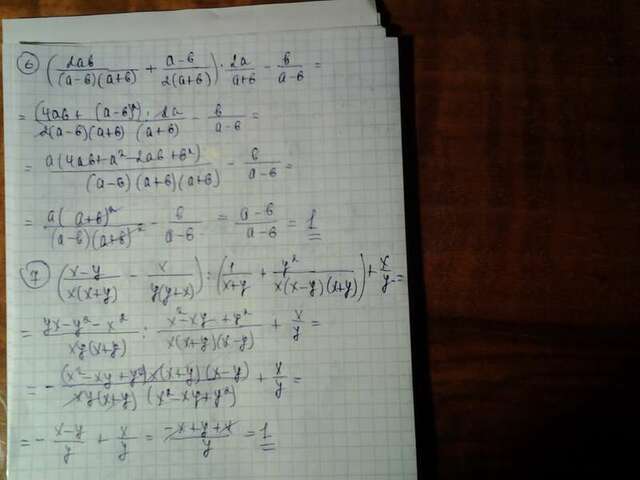 6 (2ab/((a-b)(a+b)) + (a-b)/(2(a+b))) · 2a/(a+b) - b/(a-b) =
= (4ab + (a-b)²) · 2a/(2(a-b)(a+b)(a+b)) - b/(a-b) =
= a(4ab+a²-2ab+b²)/((a-b)(a+b)(a+b)) - b/(a-b) =
= a(a+b)²/((a-b)(a+b)²) - b/(a-b) = (a-b)/(a-b) = 1
7 ((x-y)/(x(x+y)) - x/(y(y+x))) : (1/(x+y) + y²/(x(x-y)(x+y))) + x/y =
= (yx-y²-x²)/(xy(x+y)) : (x²-xy+y²)/(x(x+y)(x-y)) + x/y =
= - (x²-xy+y²)x(x+y)(x-y)/(xy(x+y)(x²-xy+y²)) + x/y =
= - (x-y)/y + x/y = (-x+y+x)/y = 1